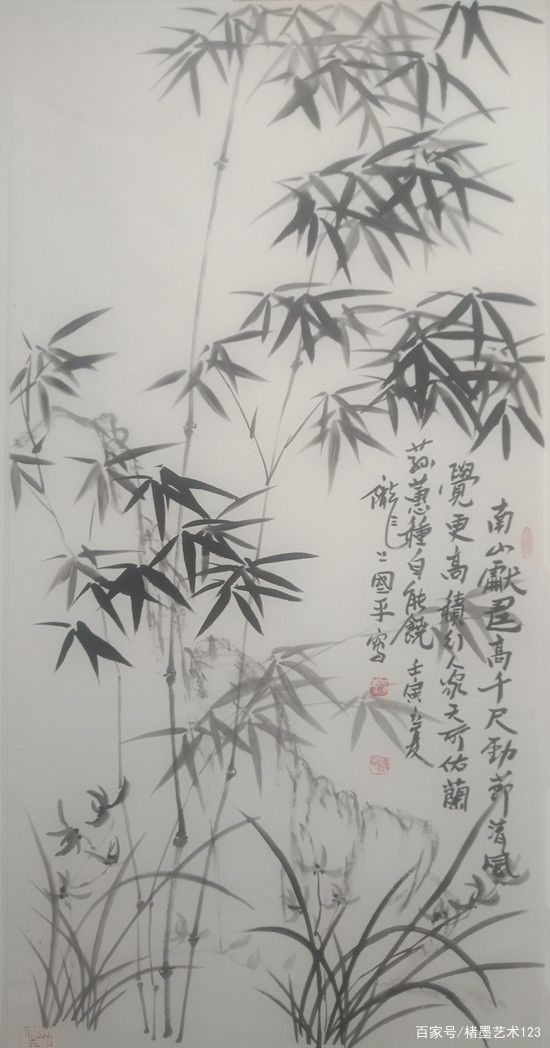 南山獻壽高千尺勁節清風
覺更高積行人家天所佑蘭
蓀蕙種自能饒 壬寅夏
隴上國平寫
百家号/楮墨艺术123